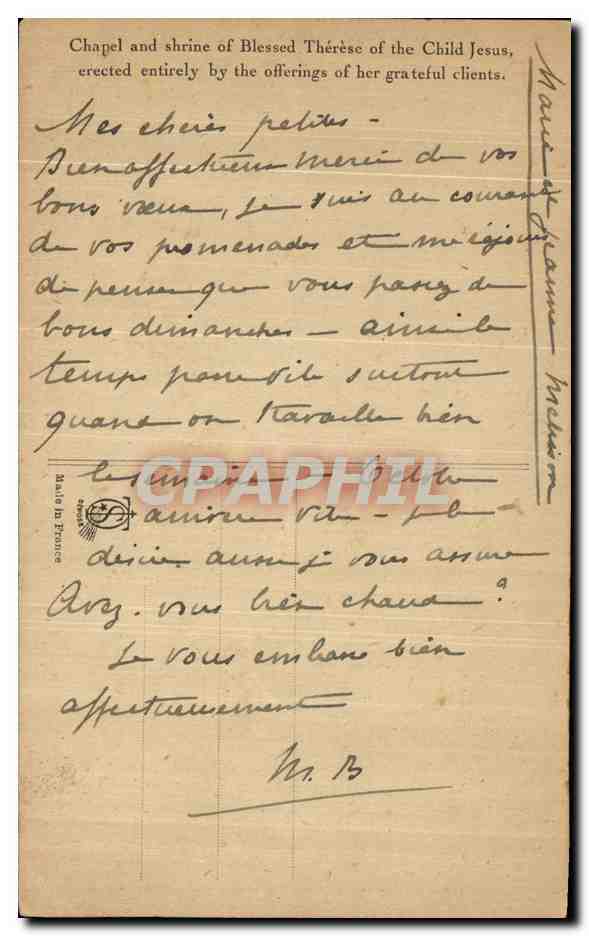 Chapel and shrine of Blessed Thérèse of the Child Jesus,
erected entirely by the offerings of her grateful clients.
Mes chères petites -
Bien affectueux merci de vos
bons vœux, je suis au courant
de vos promenades et me réjouis
de penser que vous passez de
bons dimanches - ainsi le
temps passe vite surtout
quand on travaille bien
la semaine - Octobre
arrivera vite - je le
désire aussi je vous assure
Avez-vous bien chaud ?
Je vous embrasse bien
affectueusement
M. B
Marie et Jeanne
Made in France
CAPHIL